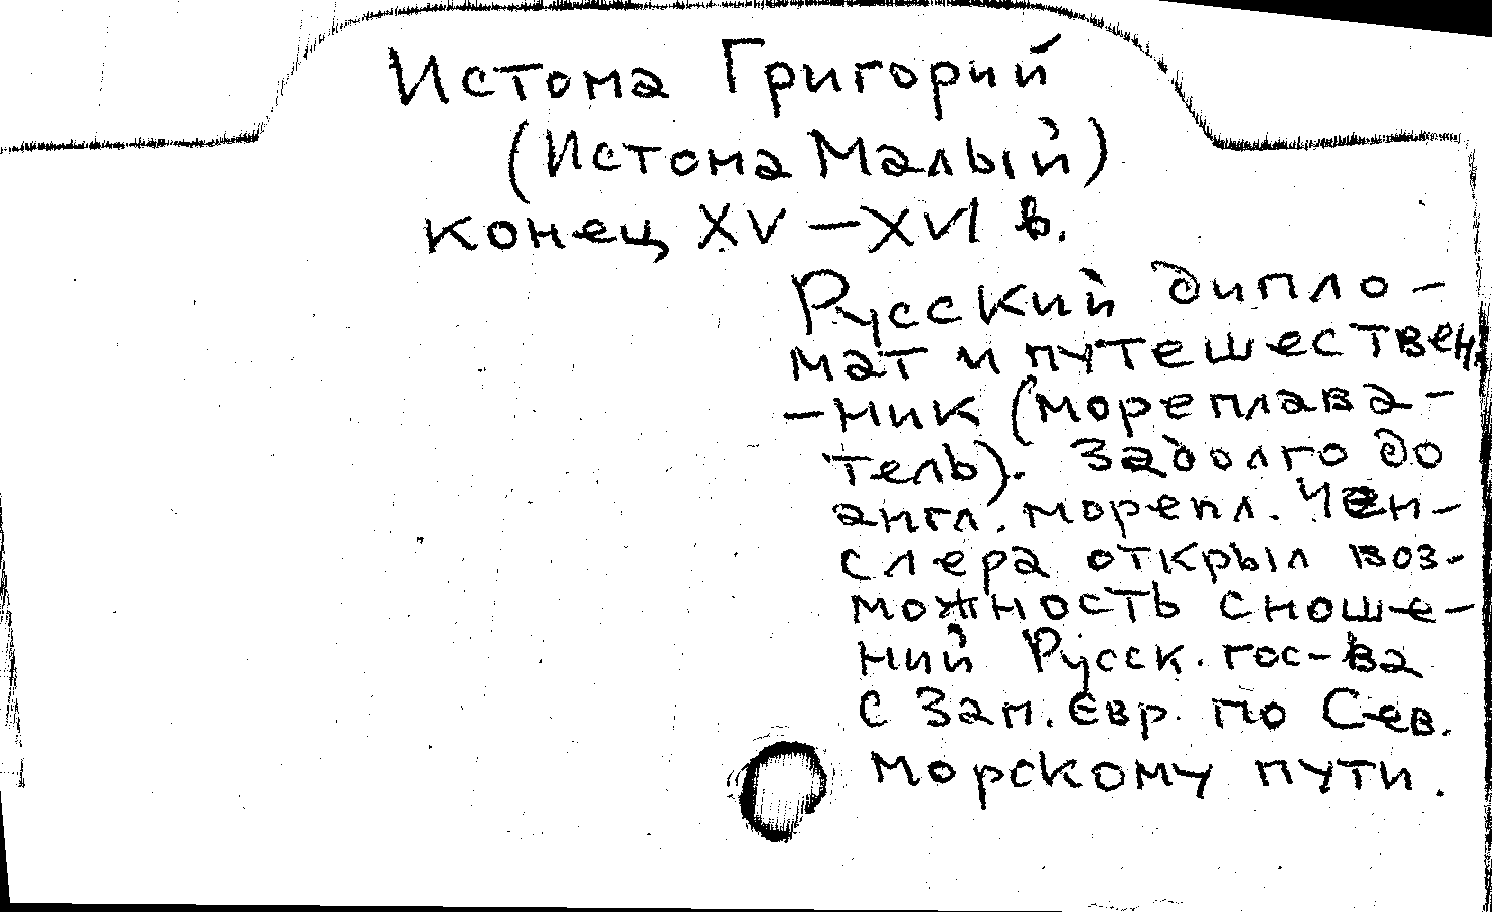 Истома Григорий
(Истома Малый)
конец XV – XVI в.
Русский дипло-
мат и путешествен.
-ник (мореплава-
тель). Задолго до
англ. морепл. Чен-
слера открыл воз-
можность сноше-
ний Русск. гос-ва
с Зап. Евр. по Сев.
морскому пути.